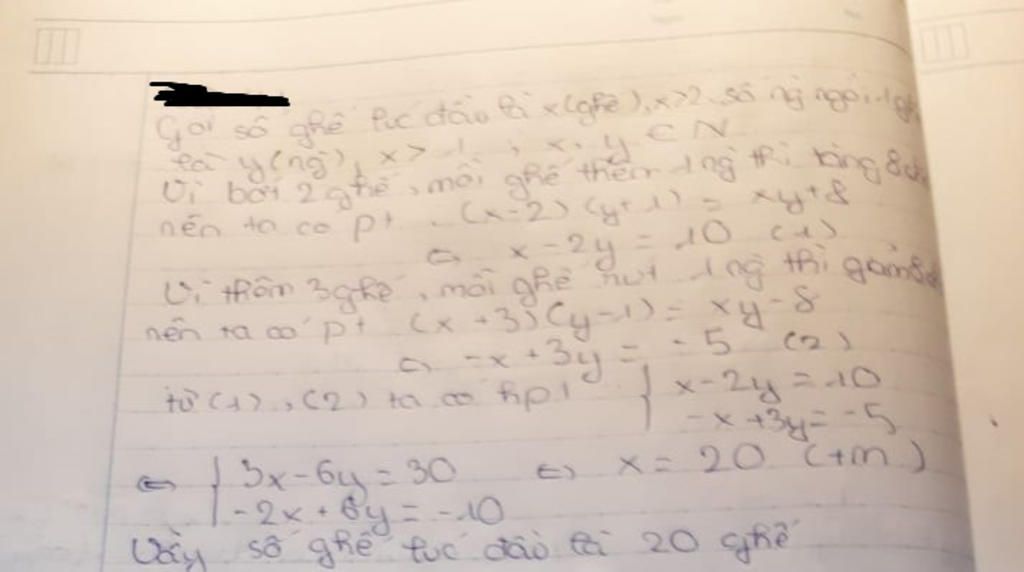 Gọi số ghế lúc đầu là x(ghế), x>2, số ng ngồi 1 gh
là y(ng), x > 1 , x, y ∈ N
Vì bớt 2 ghế, mỗi ghế thêm 1 ng thì tăng 8
nên ta có pt . (x-2) (y+1) = xy+8
⇔ x - 2y = 10 (1)
Vì thêm 3 ghế, mỗi ghế 1 ng thì giảm 8
nên ta có pt (x +3)(y-1) = xy-8
⇔ -x +3y = -5 (2)
từ (1), (2) ta có hpt { x-2y = 10
-x +3y = -5
⇔ { 3x-6y = 30 ⇔ x = 20 (tm)
-2x + 6y = -10
Vậy số ghế lúc đầu là 20 ghế